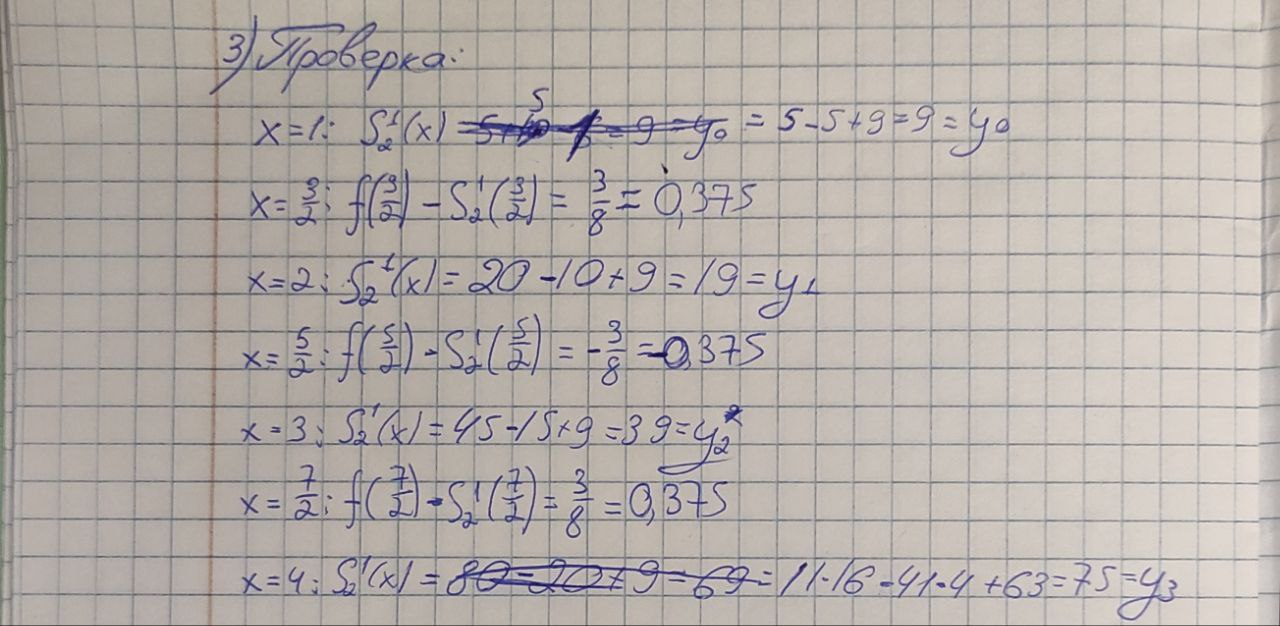 3) Проверка:
x=1: S₂¹(x) = 5-5+9=9=y₀
x=3/2: f(3/2) - S₂¹(3/2) = 3/8 = 0,375
x=2: S₂¹(x) = 20-10+9=19=y₁
x=5/2: f(5/2) - S₂¹(5/2) = -3/8 = -0,375
x=3: S₂¹(x) = 45-15+9=39=y₂
x=7/2: f(7/2) - S₂¹(7/2) = 3/8 = 0,375
x=4: S₂¹(x) = 80-20+9=69 = 11·16-41·4+63=75=y₃